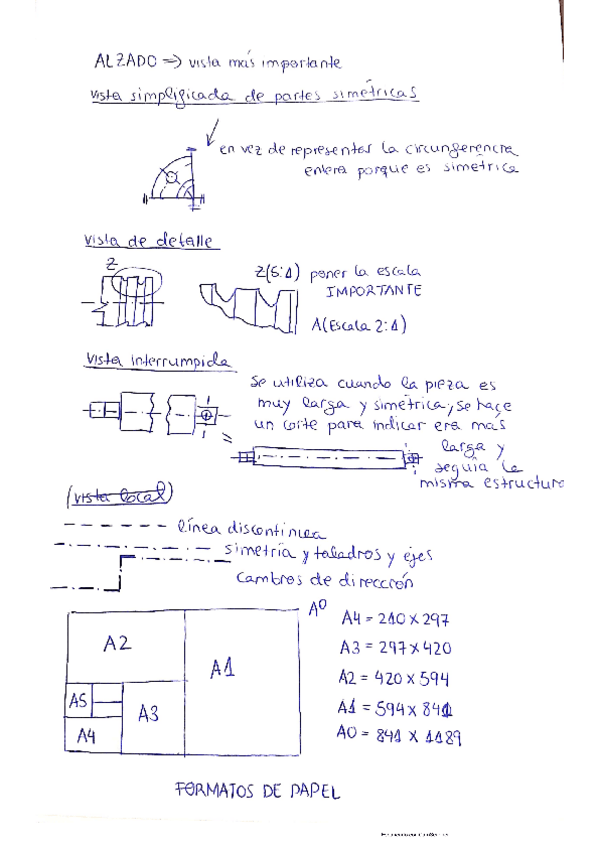 ALZADO => vista más importante
vista simplificada de partes simétricas
en vez de representar la circunferencia
entera porque es simétrica
Vista de detalle
Z
Z(5:1) poner la escala
IMPORTANTE
A(Escala 2:1)
Vista interrumpida
Se utiliza cuando la pieza es
muy larga y simétrica, se hace
un corte para indicar era más
larga y
seguía la
misma estructura
(vista local)
línea discontinua
simetría y taladros y ejes
Cambios de dirección
A0
A4 = 210 x 297
A2
A1
A3 = 297 x 420
A2 = 420 x 594
A5
A3
A1 = 594 x 841
A4
A0 = 841 x 1189
FORMATOS DE PAPEL